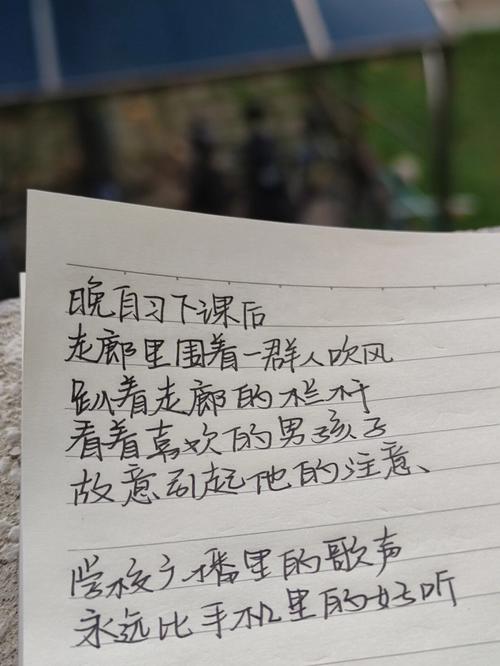 晚自习下课后
走廊里围着一群人吹风
趴着走廊的栏杆
看着喜欢的男孩子
故意引起他的注意、
学校广播里的歌声
永远比手机里的好听